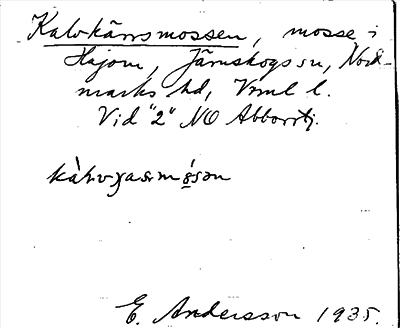 Kalvkärrsmossen, mosse i
Hajom, Järnskogs sn, Nord-
marks hd, Vrml l.
Vid "2" NO Abborrtj.
E. Andersson 1935.